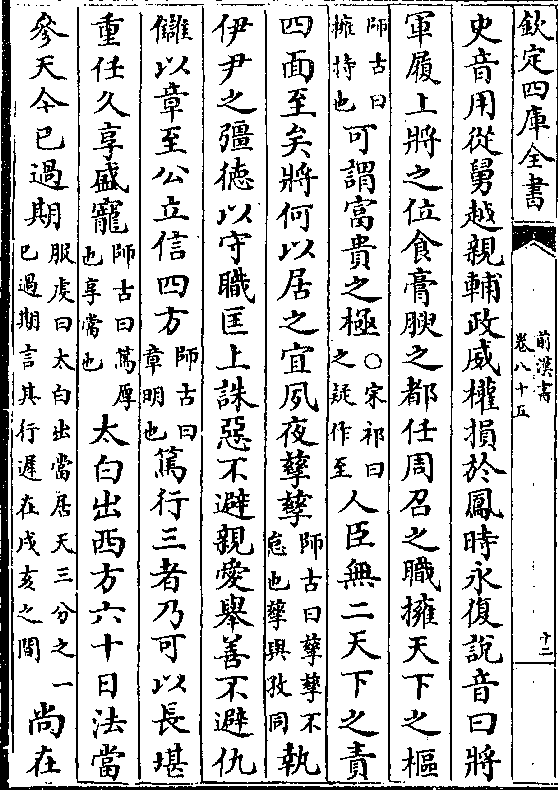 欽定四庫全書
前漢書
卷八十五
十二
史音用從舅越親輔政威權損於鳳時永復說音曰將
軍履上將之位食膏腴之都任周召之職擁天下之樞
師古曰
擁持也
可謂富貴之極
○宋祁曰
之疑作至
人臣無二天下之責
四面至矣將何以居之宜夙夜孳孳
師古曰孳孳不
怠也孳與孜同
執
伊尹之彊徳以守職匡上誅惡不避親愛舉善不避仇
讎以章至公立信四方
師古曰
章明也
篤行三者乃可以長堪
重任久享盛寵
師古曰篤厚
也享當也
太白出西方六十日法當
參天今已過期
服虔曰太白出當居天三分之一
已過期言其行遲在戌亥之間
尚在